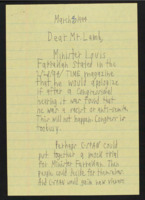 March 1994
Dear Mr. Lamb,
Minister Louis
Farrakhan stated in the
TIME magazine
that he would apologize
if after a Congressional
hearing it was found that
he was a racist or anti-semite.
This will not happen. Congress is
too busy.
Perhaps CSPAN could
put together a mock trial
for Minister Farrakhan. This
people could decide for themselves
And CSPAN will gain new viewers